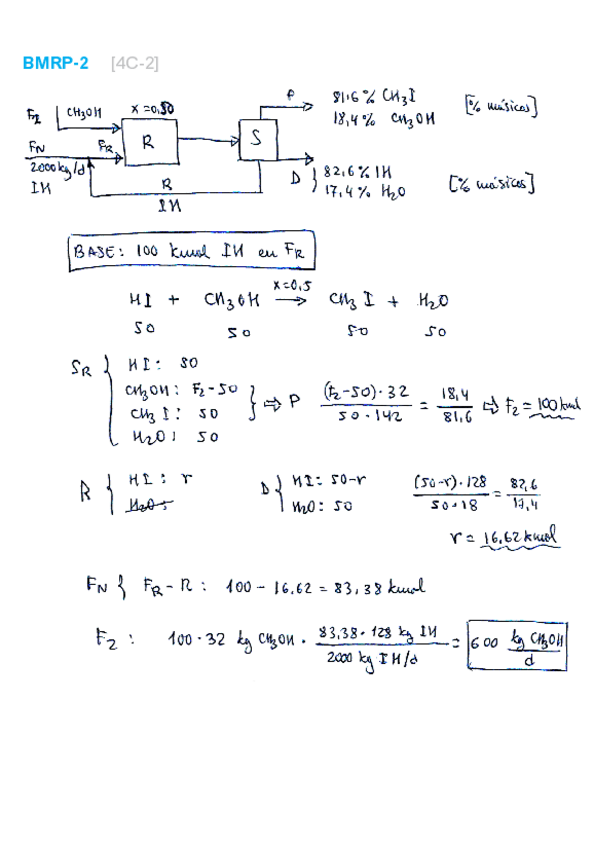 BMRP-2 [4C-2]
F2 CH3OH x=0,50
R
S
P
81,6% CH3I
18,4% CH3OH
[% másicos]
FN FR
2000 kg/d
IH
R
IH
D
82,6% IH
17,4% H2O
[% másicos]
BASE: 100 kmol IH en FR
HI + CH3OH x=0,5 → CH3I + H2O
50 50 50 50
SR { HI: 50
CH3OH: F2-50
CH3I: 50
H2O: 50
} ⇒ P (F2-50)·32 / 50·142 = 18,4 / 81,6 ⇒ F2 = 100 kmol
R { HI: r
H2O:
D { HI: 50-r
H2O: 50
(50-r)·128 / 50·18 = 82,6 / 17,4
r = 16,62 kmol
FN } FR - R: 100 - 16,62 = 83,38 kmol
F2: 100·32 kg CH3OH · 83,38·128 kg IH / 2000 kg IH/d = 600 kg CH3OH / d